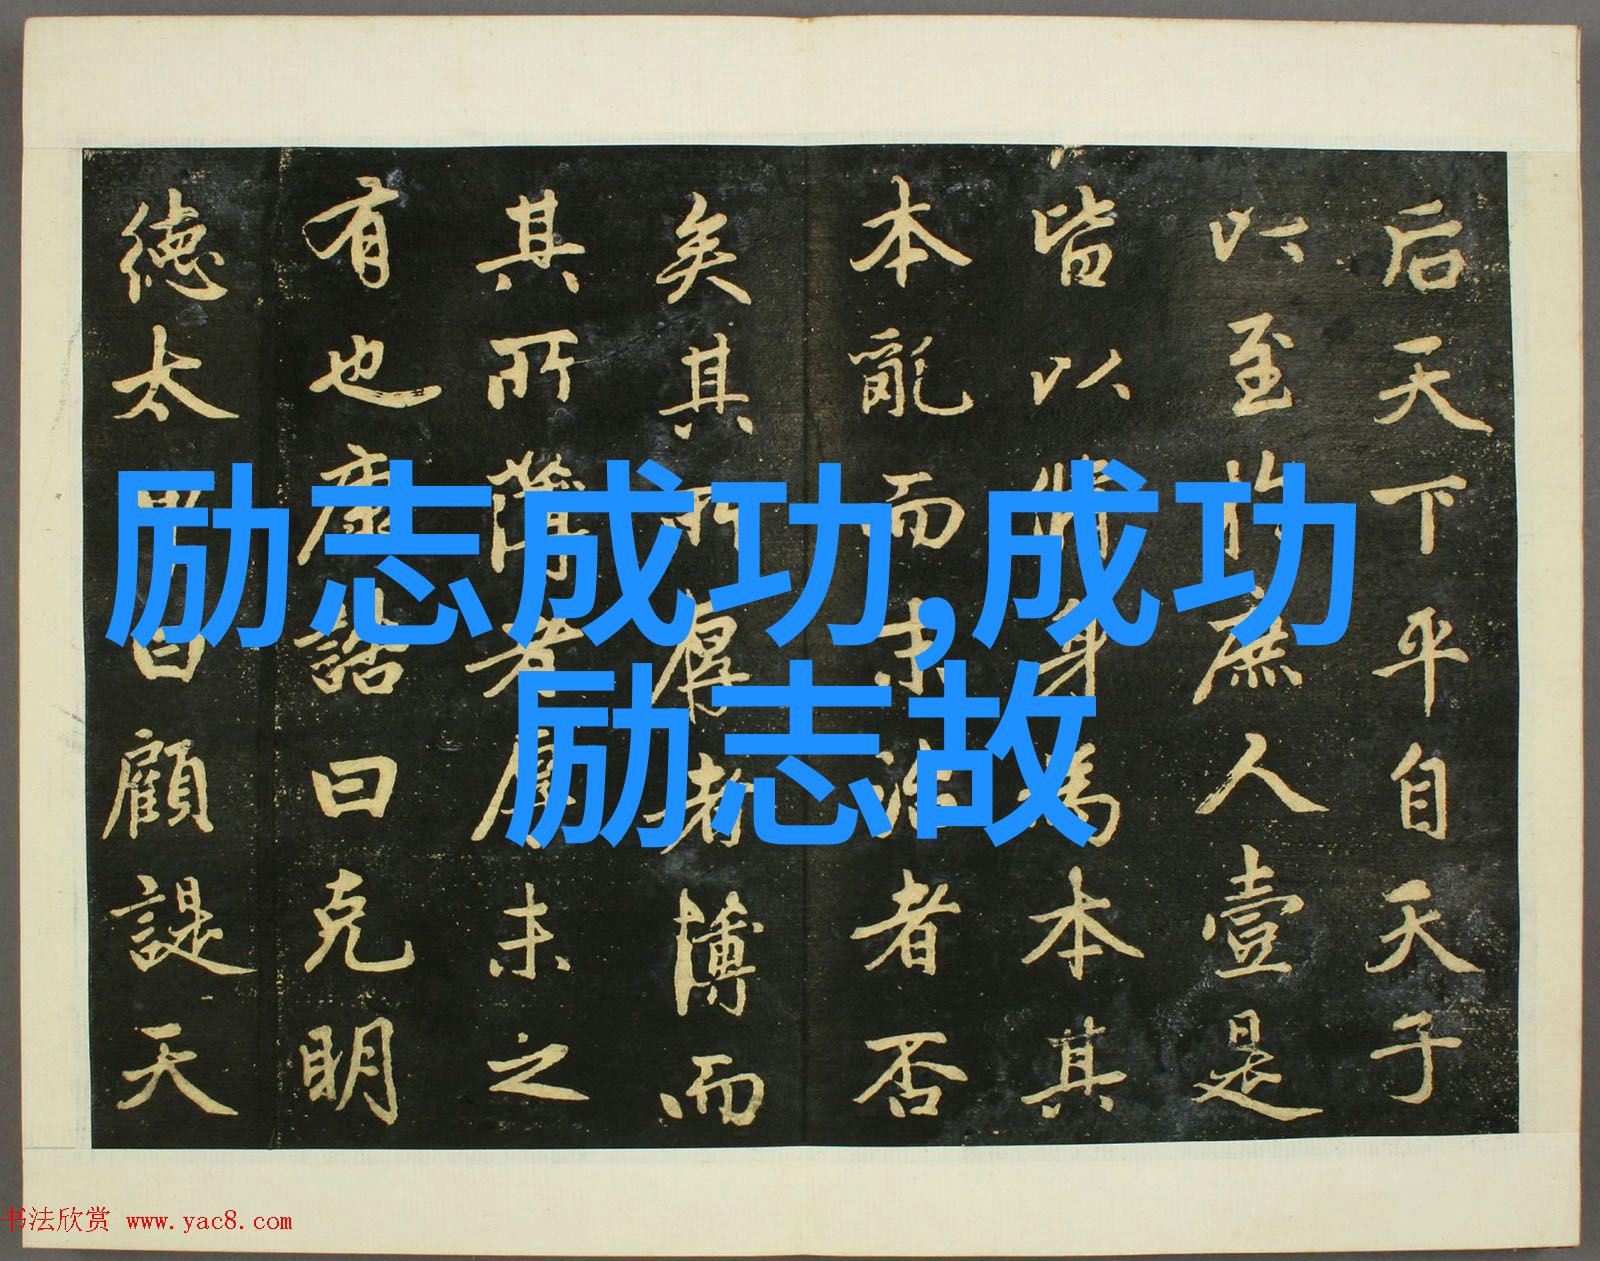 后天下平自天子
以至於庶人壹是
皆以脩身為本其
本亂而末治者否
矣其所厚者薄而
其所薄者厚未之
有也康誥曰克明
德太甲曰顧諟天
励志成功,成功
励志故
书法欣赏 www.yac8.com